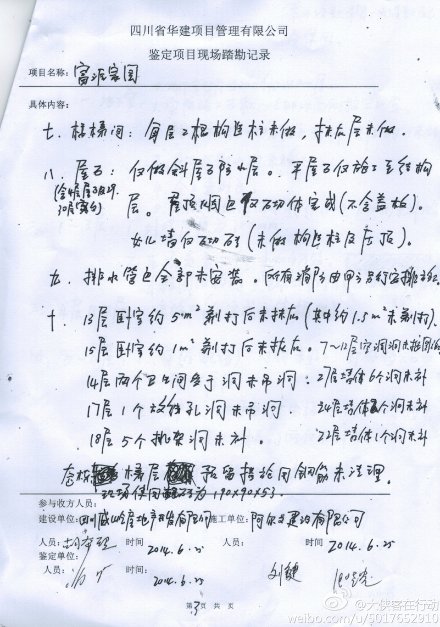 四川省华建项目管理有限公司
鉴定项目现场踏勘记录
项目名称: 富派家园
具体内容:
七、楼梯间:每层2根构造柱未做,抹灰层未做。
八、屋面:仅做斜屋面防水层。平屋面仅施工至结构
层。屋顶烟道仅砌体完成(不含盖板)。
女儿墙仅砌砖(未做构造柱及压顶)。
九、排水管道全部未安装。所有消防由甲方另行安排
十、13层卧室约5m²剔打后未抹灰(其中约1.5m²未剔打)
15层卧室约1m²剔打后未抹灰。7~12层空调洞未
14层两个卫生间管子洞未吊洞。 21层墙体6个洞未补
17层1个放线孔洞未吊洞 24层墙体 个洞未补
18层5个挑架洞未补。 22层墙体1个洞未补
楼层 预留 钢筋未清理
现场使用 为190×90×53.
参与收方人员:
建设单位: 四川 房地产开发有限公司 施工单位: 阿尔 建设有限公司
人员: 时间 2014.6.25 人员: 时间 2014.6.25
鉴定单位:
人员: 时间: 2014.6.25
第3页 共 页
@大侠客在行动
weibo.com/u/5017652910